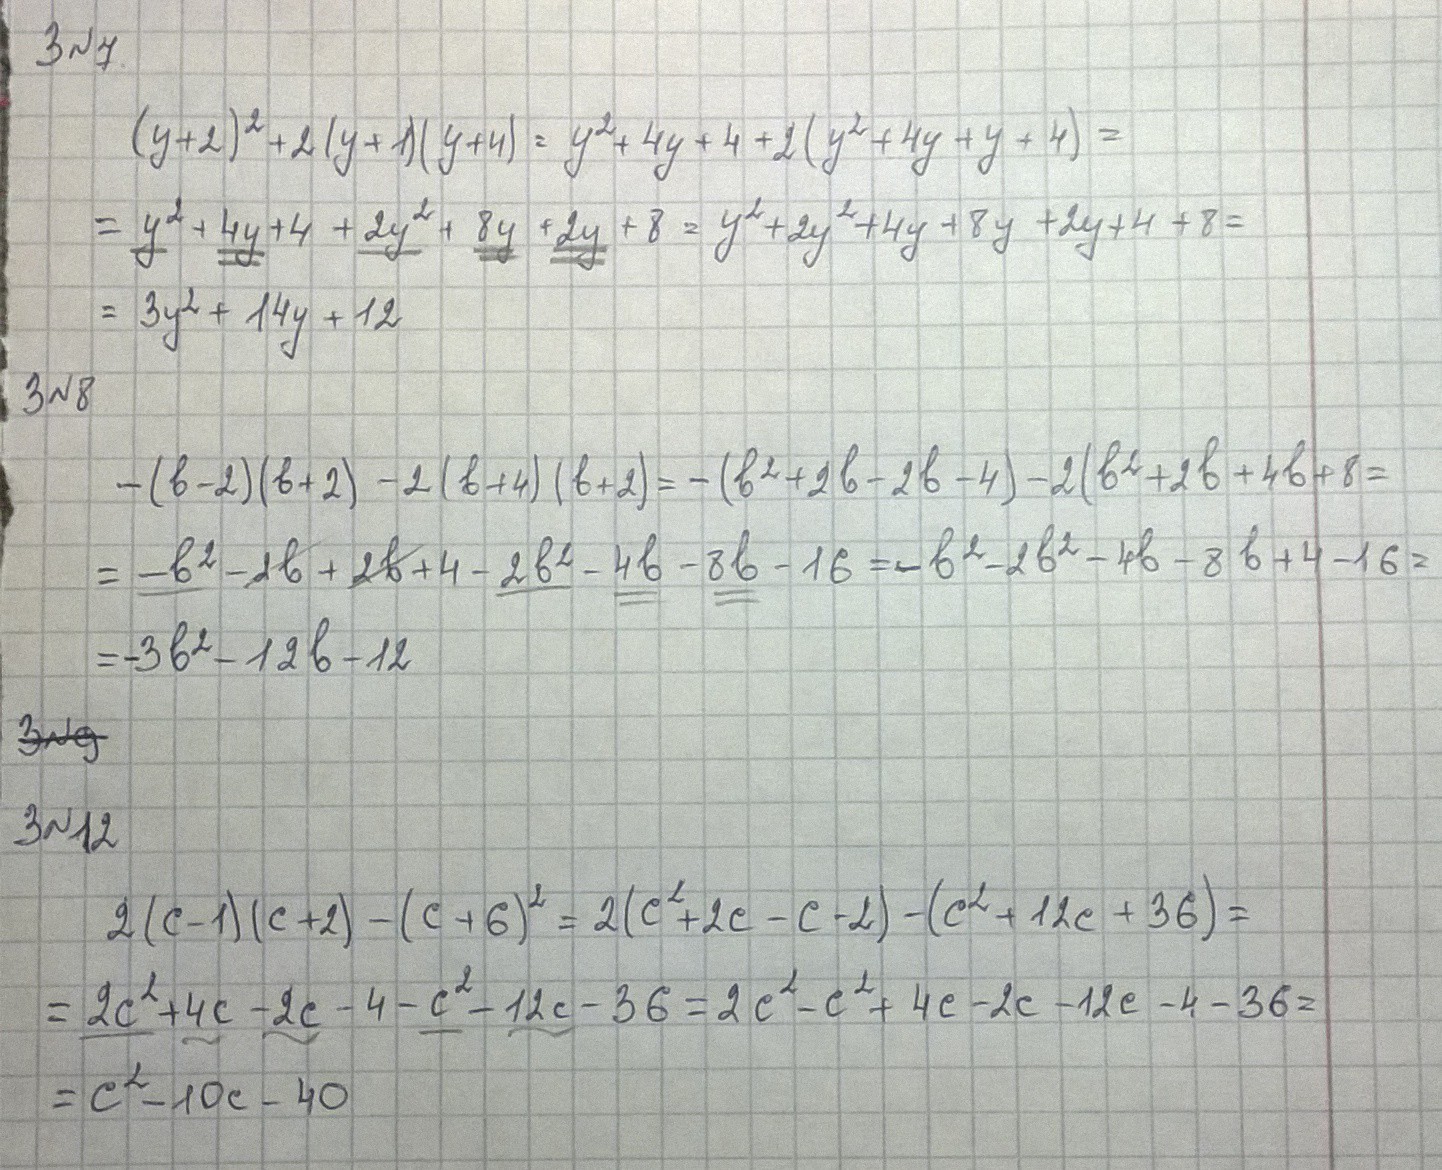 З№7
(y+2)²+2(y+1)(y+4)= y²+4y+4+2(y²+4y+y+4)=
= y²+4y+4+2y²+8y+2y+8= y²+2y²+4y+8y+2y+4+8=
= 3y²+14y+12
З№8
-(b-2)(b+2)-2(b+4)(b+2)=-(b²+2b-2b-4)-2(b²+2b+4b+8=
=-b²-2b+2b+4-2b²-4b-8b-16=-b²-2b²-4b-8b+4-16=
=-3b²-12b-12
З№9
З№12
2(c-1)(c+2)-(c+6)²=2(c²+2c-c-2)-(c²+12c+36)=
=2c²+4c-2c-4-c²-12c-36=2c²-c²+4c-2c-12c-4-36=
=c²-10c-40